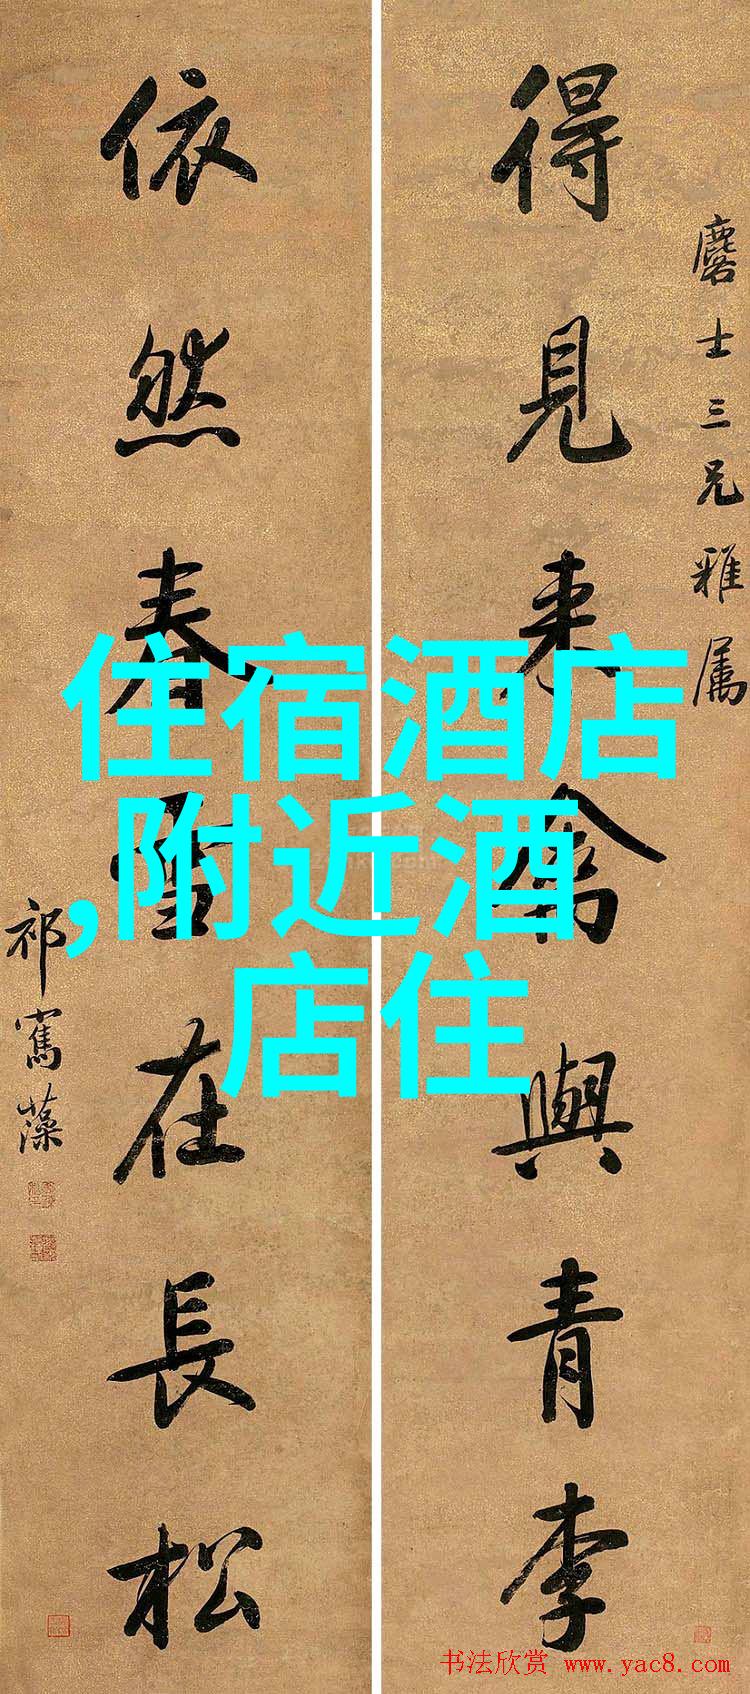 得見來禽與青李
麐士三兄雅属
依然春雪在長松
祁寯藻
住宿酒店
,附近酒
店住
书法欣赏 www.yac8.com